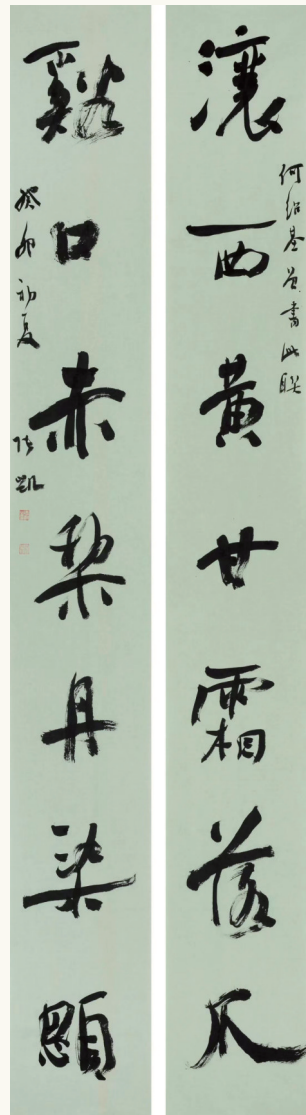 瀼西黄甘霜落爪
何紹基曾書此聯
谿口赤棃丹染顋
癸卯初夏 張凱